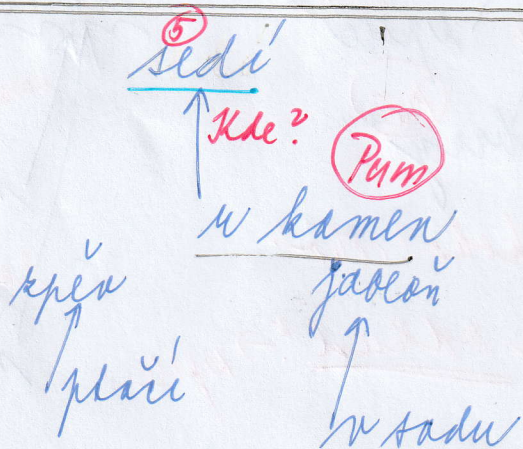 5
sedí
Kde?
Pum
u kamen
zpěv
jabloň
ptačí
v sadu